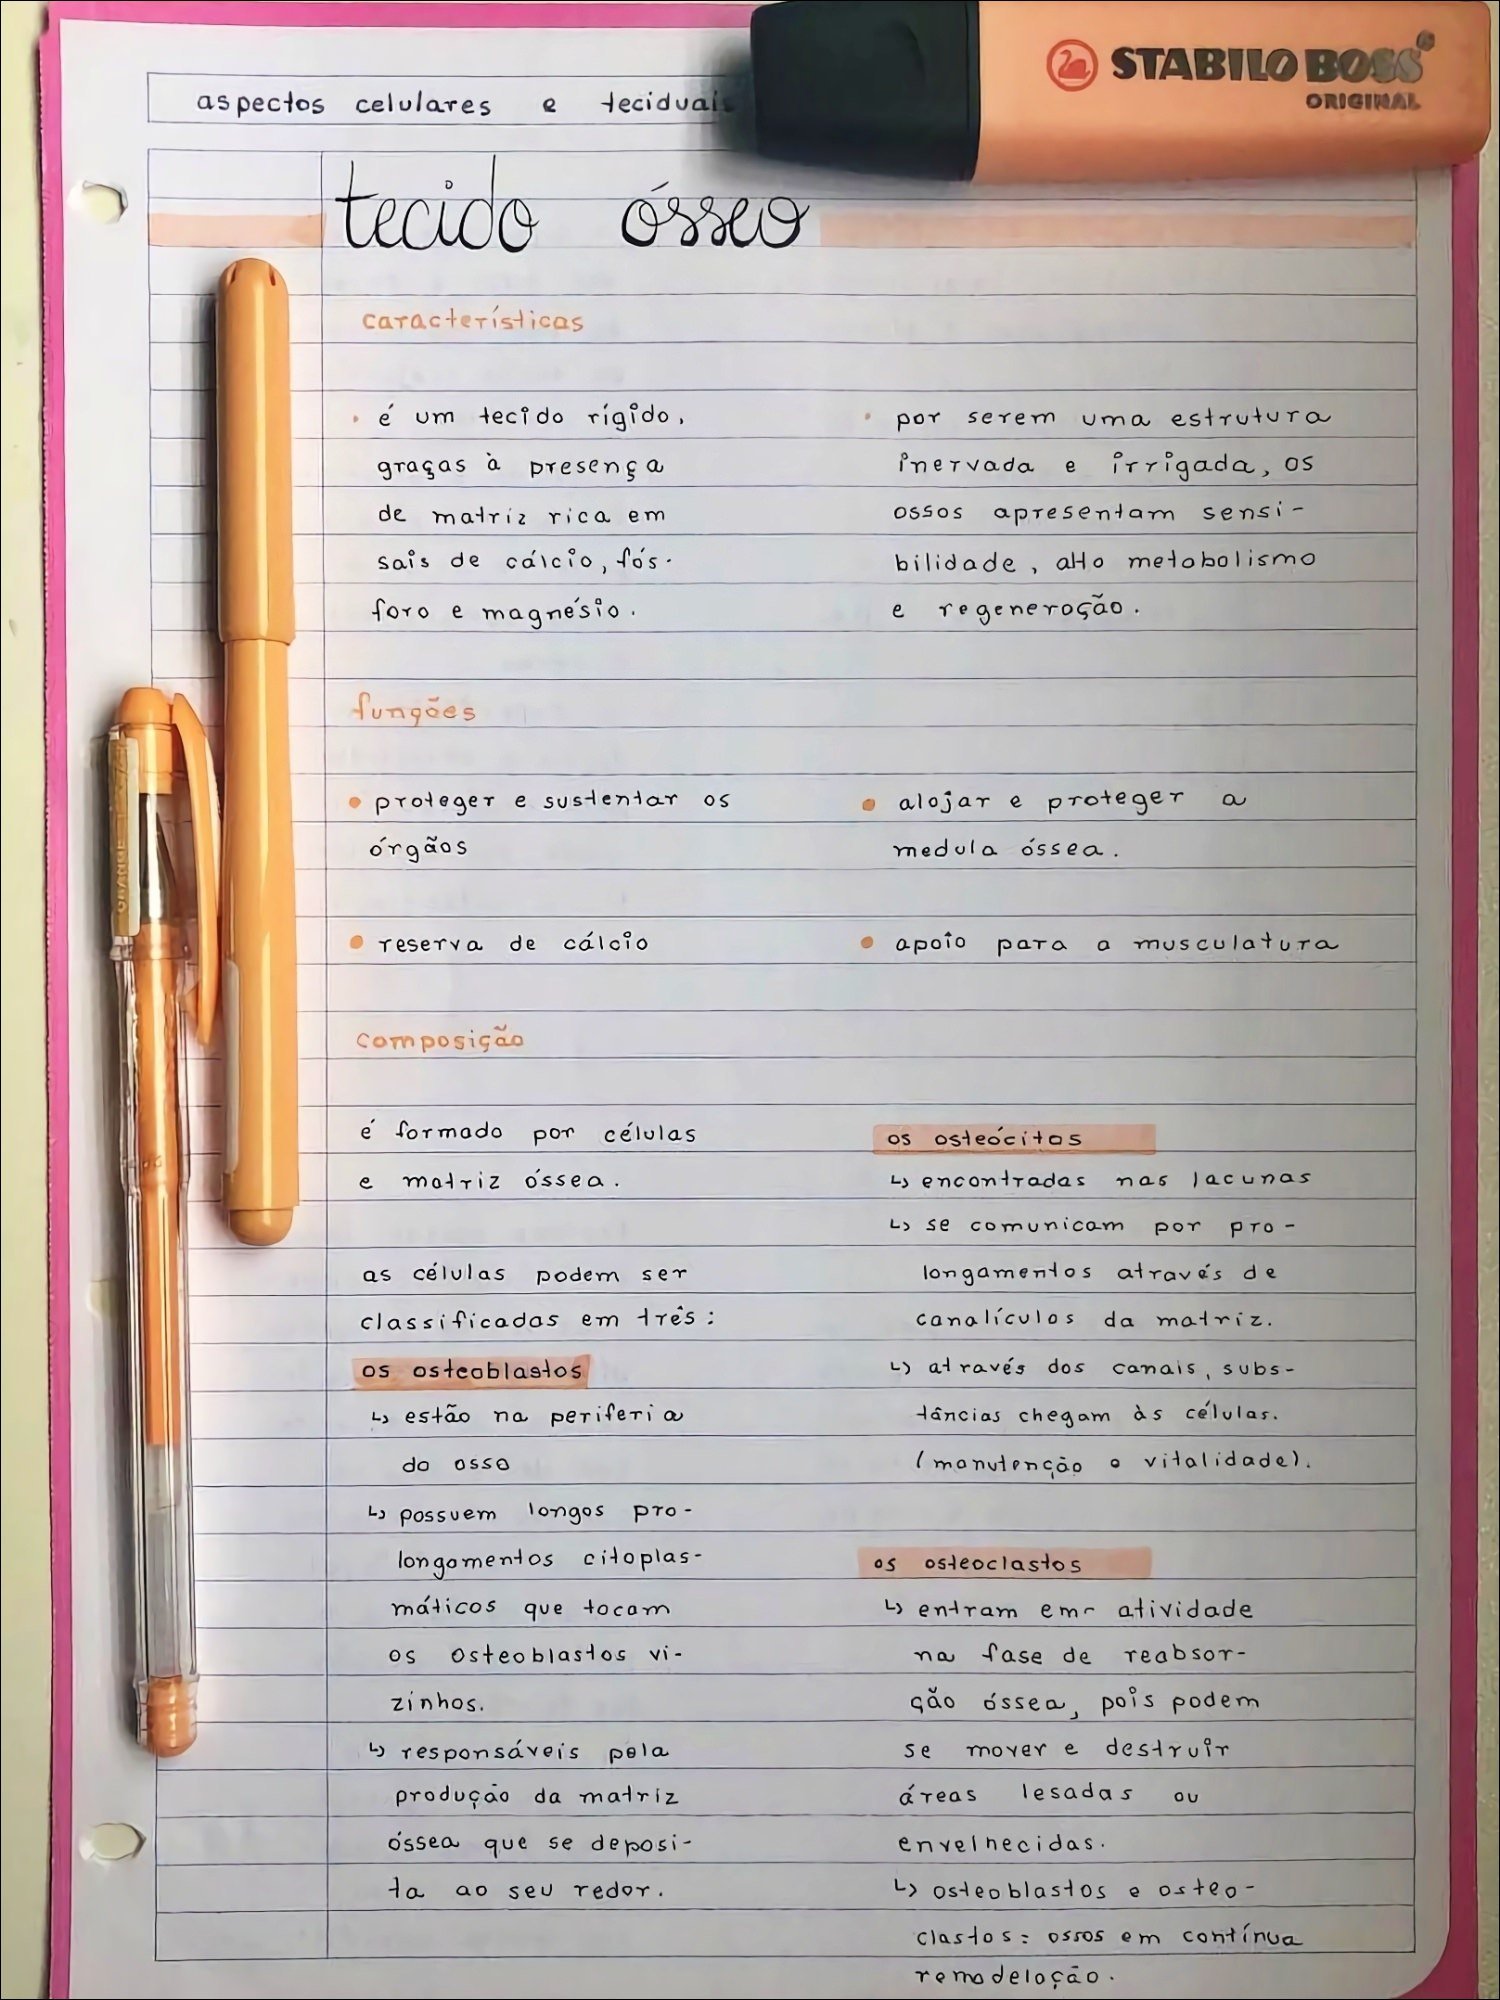 STABILO BOSS®
ORIGINAL
aspectos celulares e teciduais
tecido ósseo
características
• é um tecido rígido,
graças à presença
de matriz rica em
sais de cálcio, fós-
foro e magnésio.
• por serem uma estrutura
inervada e irrigada, os
ossos apresentam sensi-
bilidade, alto metabolismo
e regeneração.
funções
• proteger e sustentar os
órgãos
• reserva de cálcio
• alojar e proteger a
medula óssea.
• apoio para a musculatura
composição
é formado por células
e matriz óssea.
as células podem ser
classificadas em três:
os osteoblastos
↳ estão na periferia
do osso
↳ possuem longos pro-
longamentos citoplas-
máticos que tocam
os osteoblastos vi-
zinhos.
↳ responsáveis pela
produção da matriz
óssea que se deposi-
ta ao seu redor.
os osteócitos
↳ encontradas nas lacunas
↳ se comunicam por pro-
longamentos através de
canalículos da matriz.
↳ através dos canais, subs-
tâncias chegam às células.
(manutenção e vitalidade).
os osteoclastos
↳ entram em atividade
na fase de reabsor-
ção óssea, pois podem
se mover e destruir
áreas lesadas ou
envelhecidas.
↳ osteoblastos e osteo-
clastos = ossos em contínua
remodelação.
ORANGE